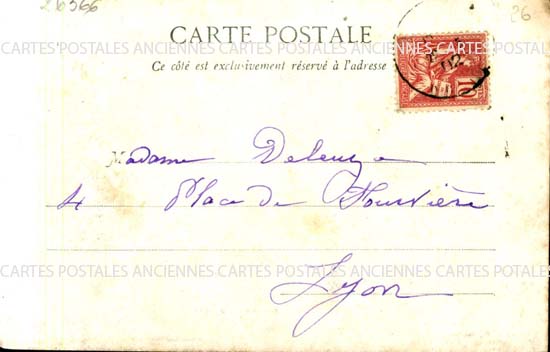 26366
26
CARTE POSTALE
Ce côté est exclusivement réservé à l'adresse
CARTES POSTALES ANCIENNES CARTES POSTALES ANCIENNES CARTES POSTALES
10
02
Madame Deleuze
4 Place de Fourvière
CARTES POSTALES ANCIENNES CARTES POSTALES ANCIENNES CARTES POSTALES
Lyon